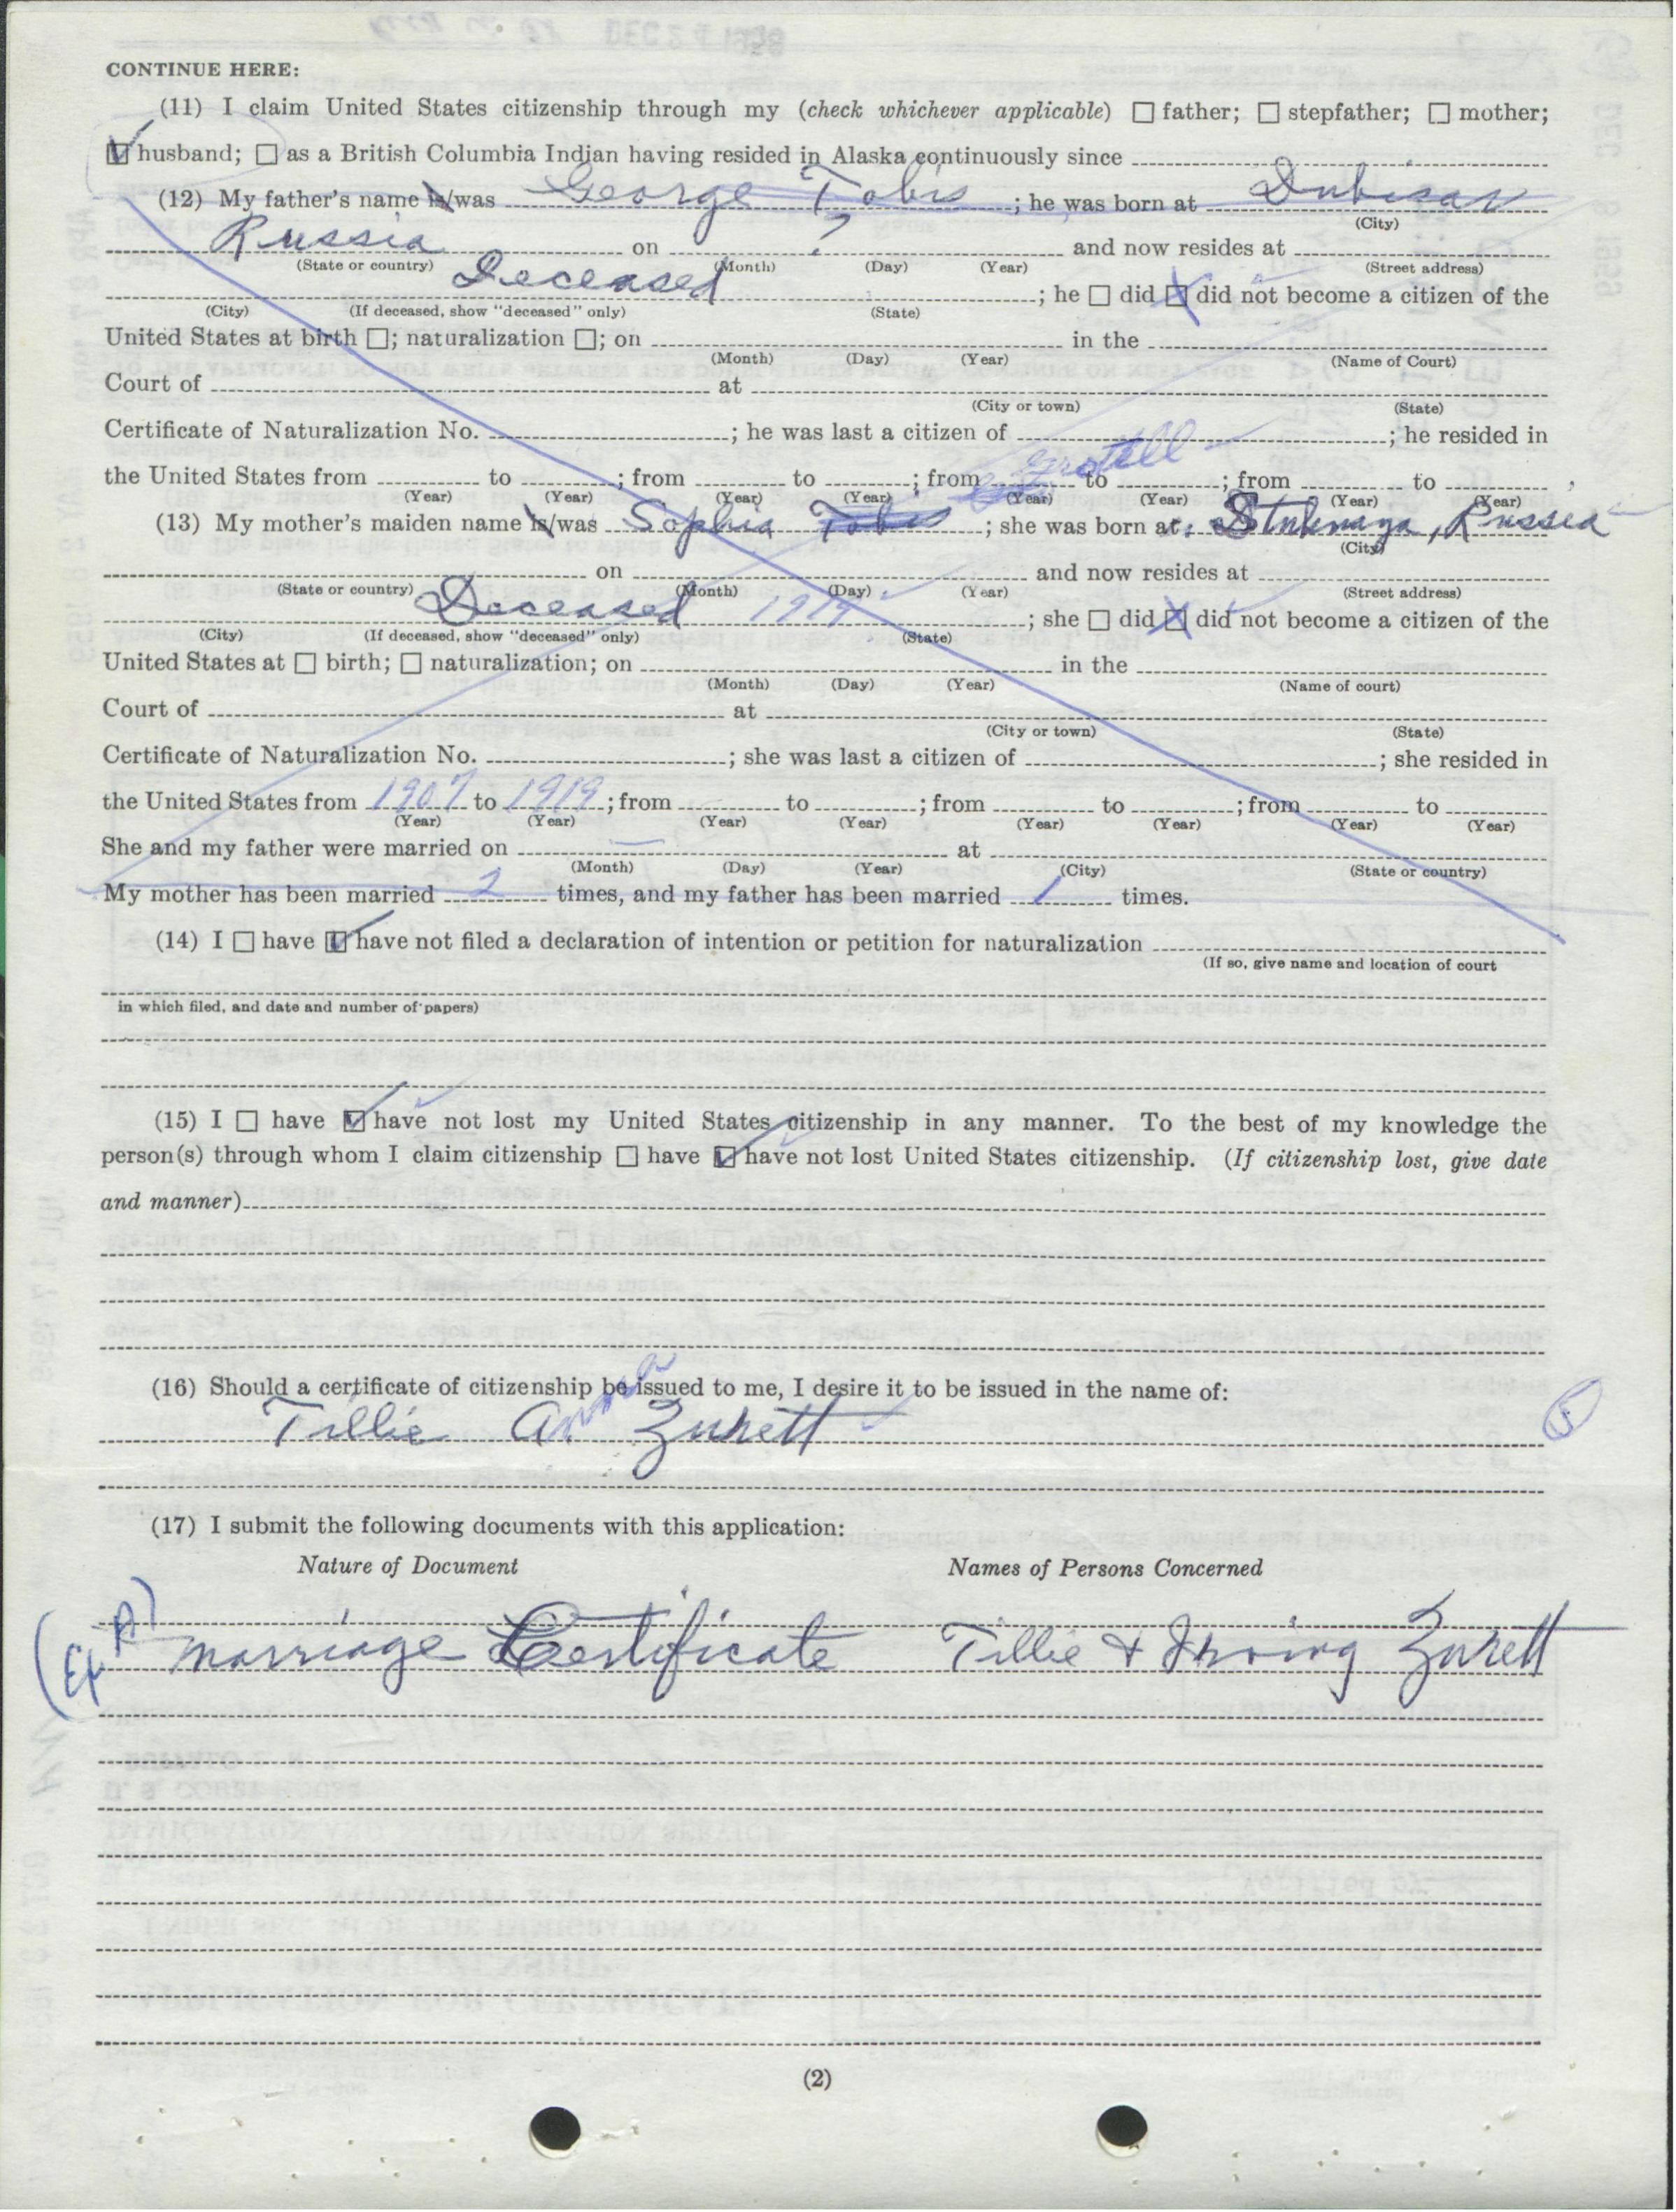 CONTINUE HERE:
(11) I claim United States citizenship through my (check whichever applicable) ☐ father; ☐ stepfather; ☐ mother;
☑ husband; ☐ as a British Columbia Indian having resided in Alaska continuously since
(12) My father's name is/was George Tobis; he was born at
(City)
Russia on ? and now resides at
(State or country) (Month) (Day) (Year) (Street address)
Deceased; he ☐ did ☒ did not become a citizen of the
(City) (If deceased, show "deceased" only) (State)
United States at birth ☐; naturalization ☐; on in the
(Month) (Day) (Year) (Name of Court)
Court of at
(City or town) (State)
Certificate of Naturalization No. ; he was last a citizen of ; he resided in
the United States from to ; from to ; from to ; from to
(Year) (Year) (Year) (Year) (Year) (Year) (Year) (Year)
(13) My mother's maiden name is/was Sophia Tobis; she was born at: Russia
(City)
on and now resides at
(State or country) (Month) (Day) (Year) (Street address)
Deceased 1919; she ☐ did ☒ did not become a citizen of the
(City) (If deceased, show "deceased" only) (State)
United States at ☐ birth; ☐ naturalization; on in the
(Month) (Day) (Year) (Name of court)
Court of at
(City or town) (State)
Certificate of Naturalization No. ; she was last a citizen of ; she resided in
the United States from 1907 to 1919; from to ; from to ; from to
(Year) (Year) (Year) (Year) (Year) (Year) (Year) (Year)
She and my father were married on — at
(Month) (Day) (Year) (City) (State or country)
My mother has been married 2 times, and my father has been married 1 times.
(14) I ☐ have ☑ have not filed a declaration of intention or petition for naturalization
(If so, give name and location of court
in which filed, and date and number of papers)
(15) I ☐ have ☑ have not lost my United States citizenship in any manner. To the best of my knowledge the
person(s) through whom I claim citizenship ☐ have ☑ have not lost United States citizenship. (If citizenship lost, give date
and manner)
(16) Should a certificate of citizenship be issued to me, I desire it to be issued in the name of:
Tillie Anna Zurett
5
(17) I submit the following documents with this application:
Nature of Document Names of Persons Concerned
(Ex A) Marriage Certificate Tillie & Irving Zurett
(2)